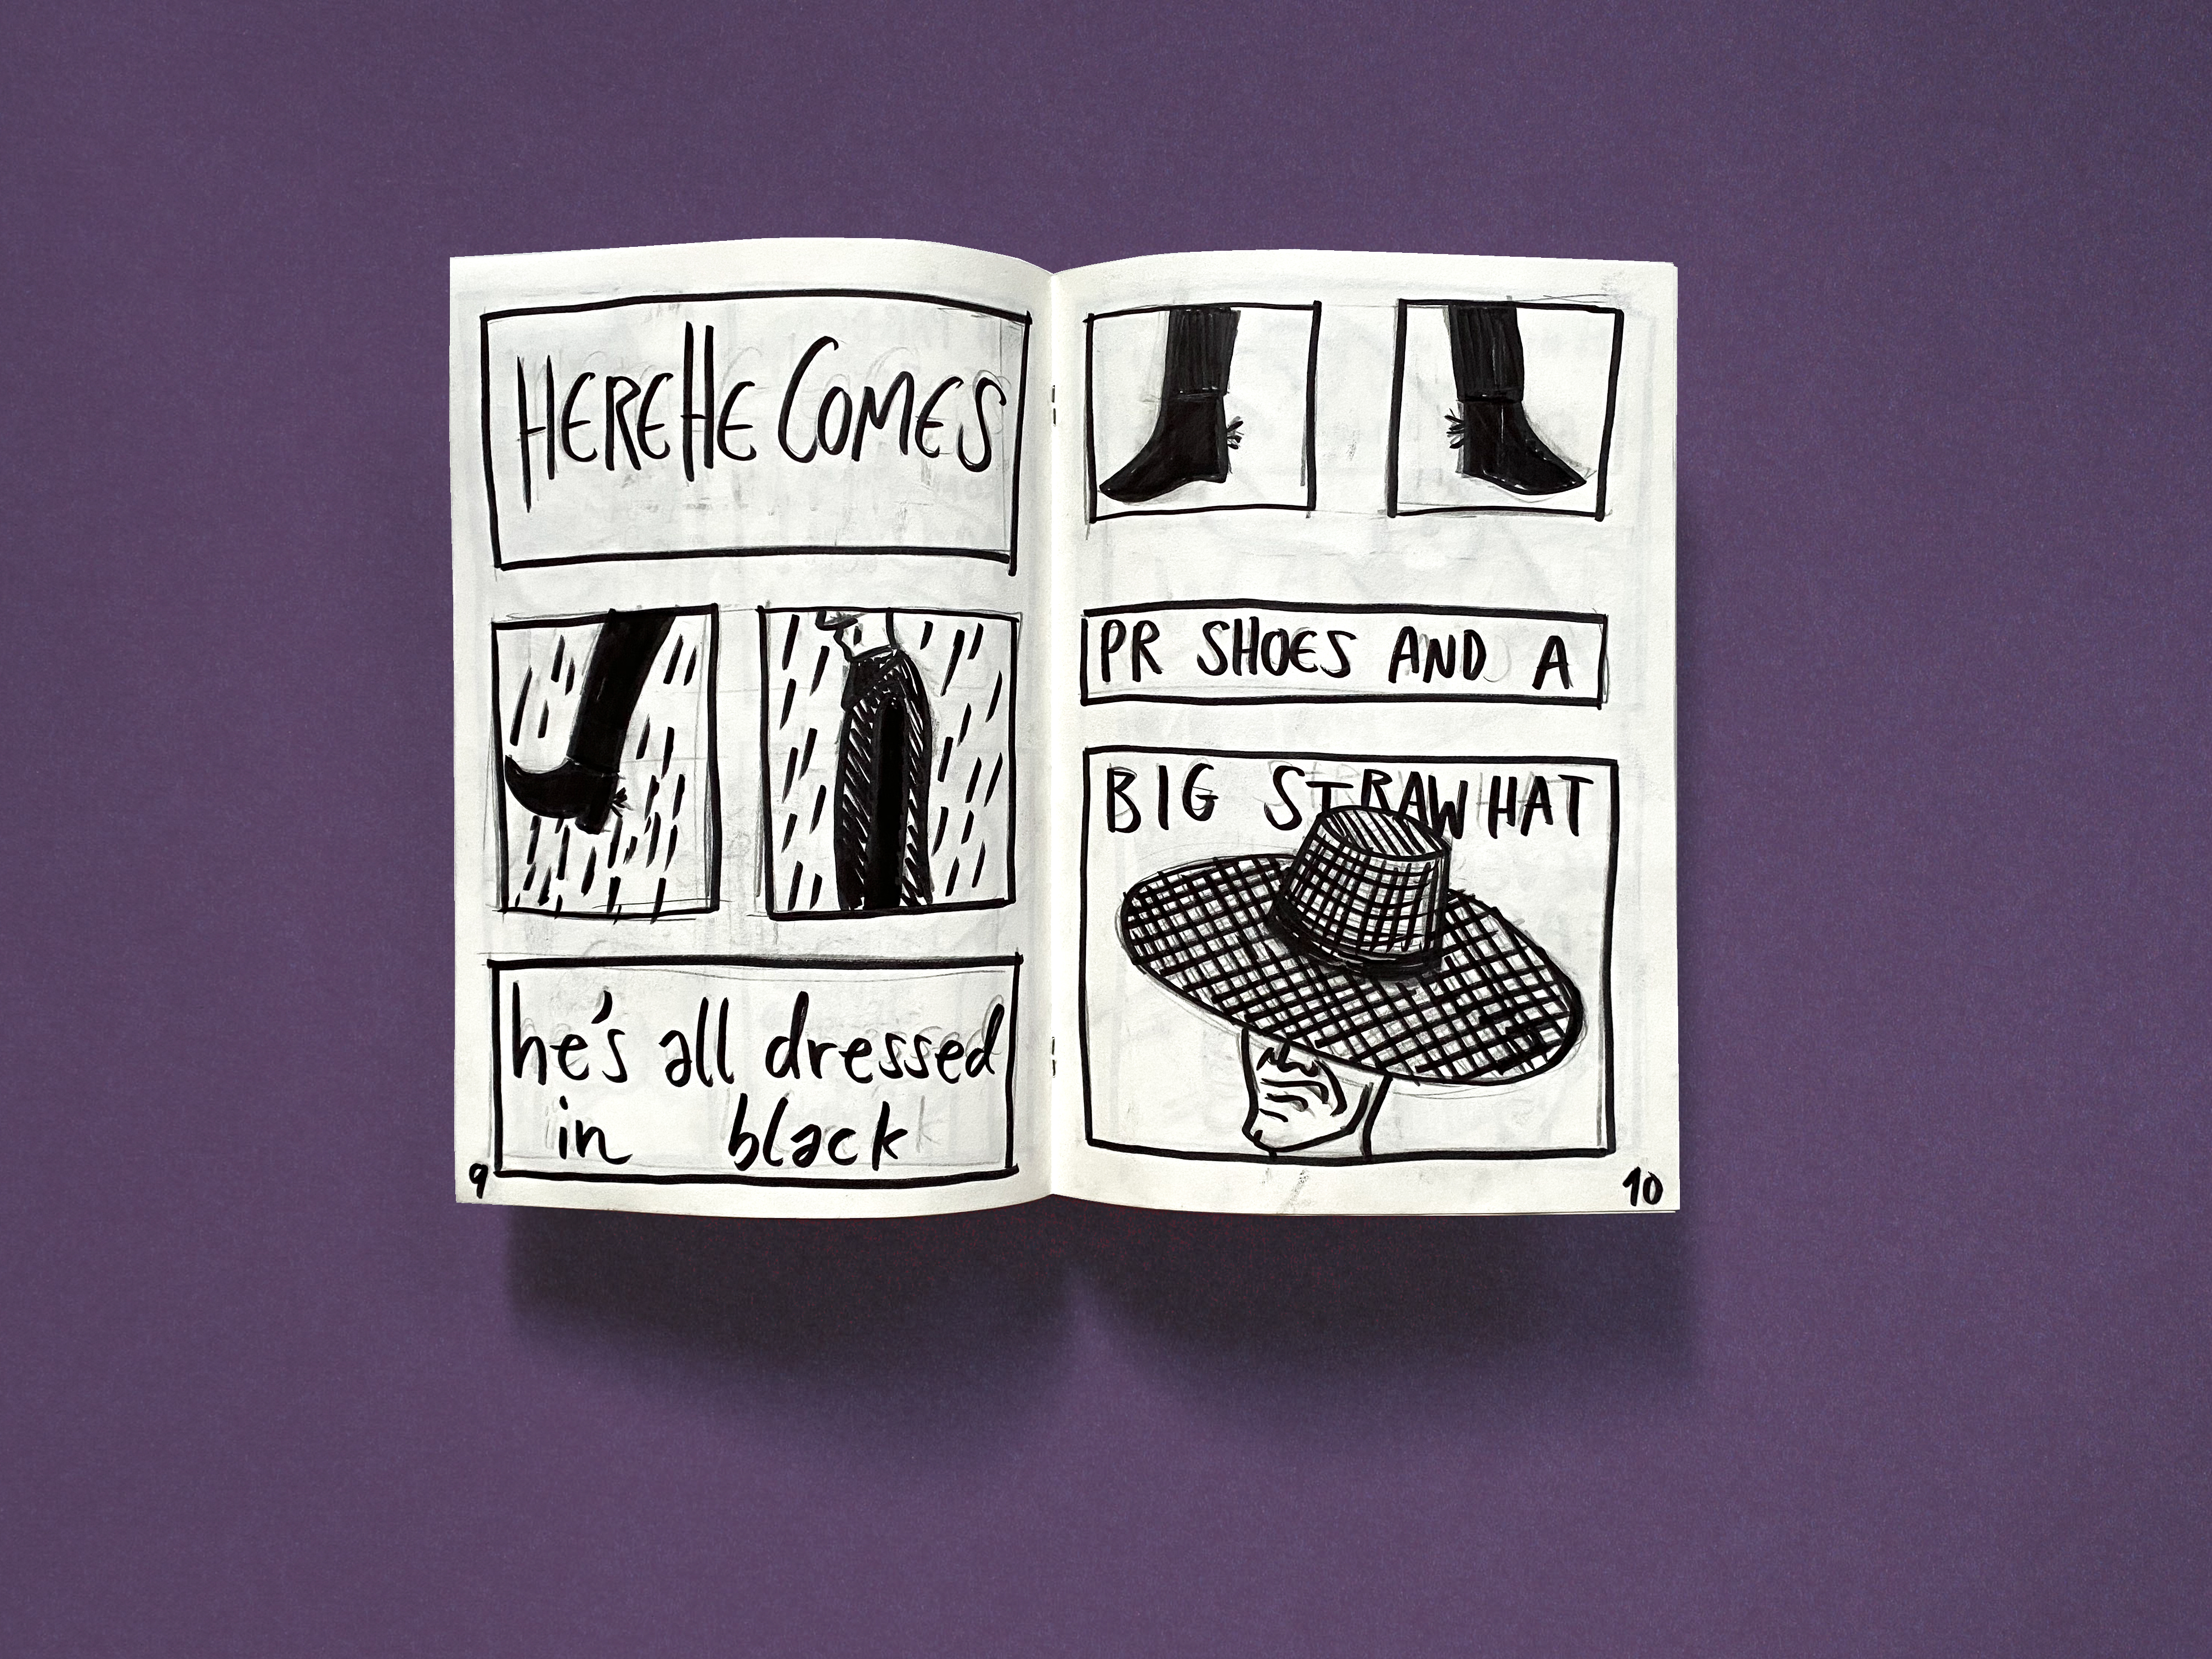 HERE HE COMES
he's all dressed
in black
9
PR SHOES AND A
BIG STRAW HAT
10